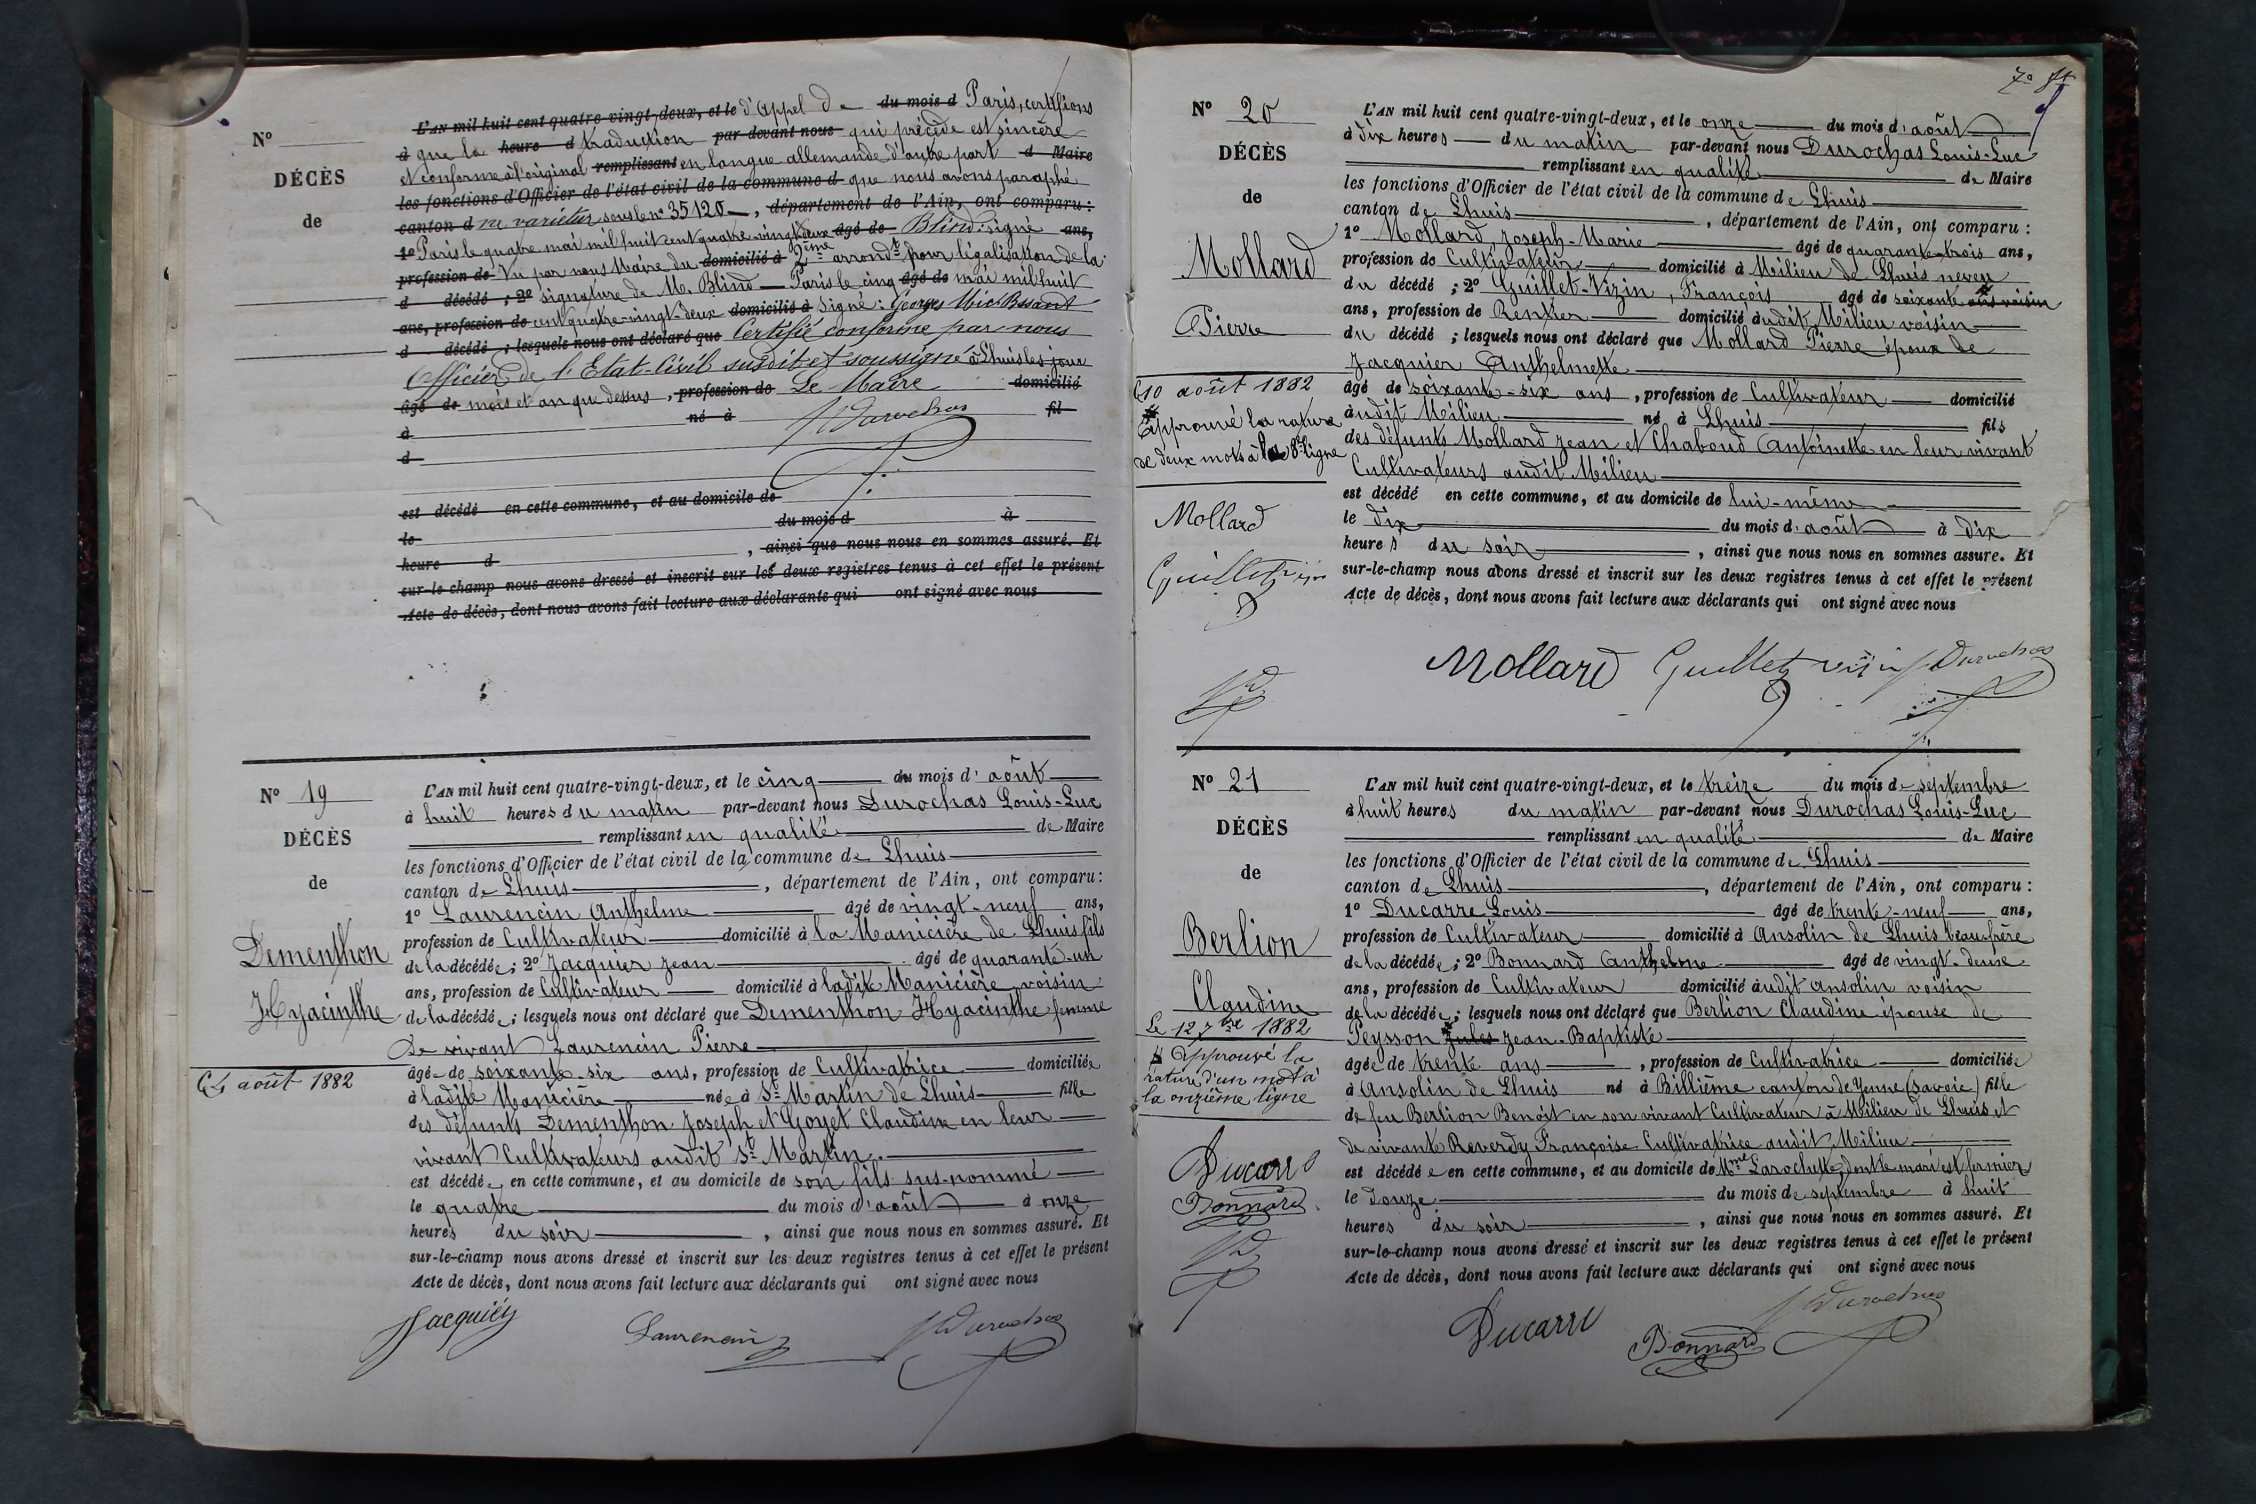 N°
DÉCÈS
de
L'AN mil huit cent quatre-vingt-deux, et le d'appel de du mois d Paris, certifions
à que la heure d traduction par-devant nous qui précède est sincère
et conforme à l'original remplissant en langue allemande d'autre part d Maire
les fonctions d'Officier de l'état civil de la commune d que nous avons paraphé
canton d ne varietur sous le n° 35120, département de l'Ain, ont comparu :
1° Paris le quatre mai mil huit cent quatre-vingt-deux âgé de Blind. signé ans,
profession de Vu par nous Maire du domicilié à 2ème arrondt pour légalisation de la
d décédé ; 2° signature de M. Blind — Paris le cinq âgé de mai mil huit
ans, profession de cent quatre-vingt-deux domicilié à Signé : Georges
d décédé ; lesquels nous ont déclaré que Certifié conforme par nous
Officier de l'Etat-Civil susdit et soussigné à Lhuis les jour
âgé de mois et an que dessus, profession de Le Maire domicilié
à né à fil
d
est décédé en cette commune, et au domicile de
le du mois d à
heure d , ainsi que nous nous en sommes assuré. Et
sur-le-champ nous avons dressé et inscrit sur les deux registres tenus à cet effet le présent
Acte de décès, dont nous avons fait lecture aux déclarants qui ont signé avec nous
N° 19
DÉCÈS
de
Dementhon
Hyacinthe
Le 4 août 1882
L'AN mil huit cent quatre-vingt-deux, et le cinq du mois d'août
à huit heures du matin par-devant nous Durochas Louis-Luc
remplissant en qualité de Maire
les fonctions d'Officier de l'état civil de la commune de Lhuis
canton de Lhuis, département de l'Ain, ont comparu :
1° Laurencin Anthelme âgé de vingt-neuf ans,
profession de Cultivateur domicilié à la Manicière de Lhuis fils
de la décédée ; 2° Jacquier Jean âgé de quarante-un
ans, profession de Cultivateur domicilié à ladite Manicière voisin
de la décédée ; lesquels nous ont déclaré que Dementhon Hyacinthe femme
de vivant Laurencin Pierre
âgée de soixante-six ans, profession de Cultivatrice domiciliée
à ladite Manicière née à St Martin de Lhuis fille
des défunts Dementhon Joseph et Goyet Claudine en leur
vivant Cultivateurs audit St Martin.
est décédée en cette commune, et au domicile de son fils sus-nommé
le quatre du mois d'août à onze
heures du soir, ainsi que nous nous en sommes assuré. Et
sur-le-champ nous avons dressé et inscrit sur les deux registres tenus à cet effet le présent
Acte de décès, dont nous avons fait lecture aux déclarants qui ont signé avec nous
Jacquiéy Laurencin Durochas
N° 20
DÉCÈS
de
Mollard
Pierre
Le 10 août 1882
Approuvé la rature
de deux mots à la 8e ligne
Mollard
Guillet vizin
L'AN mil huit cent quatre-vingt-deux, et le onze du mois d'août
à dix heures du matin par-devant nous Durochas Louis-Luc
remplissant en qualité de Maire
les fonctions d'Officier de l'état civil de la commune de Lhuis
canton de Lhuis, département de l'Ain, ont comparu :
1° Mollard, Joseph-Marie âgé de quarante-trois ans,
profession de Cultivateur domicilié à Milieu de Lhuis neveu
du décédé ; 2° Guillet-Vizin, François âgé de soixante ans voisin
ans, profession de Rentier domicilié audit Milieu voisin
du décédé ; lesquels nous ont déclaré que Mollard Pierre époux de
Jacquier Anthelmette
âgé de soixante-six ans, profession de Cultivateur domicilié
audit Milieu né à Lhuis fils
des défunts Mollard Jean et Chaboud Antoinette en leur vivant
Cultivateurs audit Milieu
est décédé en cette commune, et au domicile de lui-même
le dix du mois d'août à dix
heures du soir, ainsi que nous nous en sommes assuré. Et
sur-le-champ nous avons dressé et inscrit sur les deux registres tenus à cet effet le présent
Acte de décès, dont nous avons fait lecture aux déclarants qui ont signé avec nous
Mollard Guillet vizin Durochas
N° 21
DÉCÈS
de
Berlion
Claudine
Le 12 7bre 1882
Approuvé la
rature d'un mot à
la onzième ligne
Ducarre
Bonnard
L'AN mil huit cent quatre-vingt-deux, et le treize du mois de septembre
à huit heures du matin par-devant nous Durochas Louis-Luc
remplissant en qualité de Maire
les fonctions d'Officier de l'état civil de la commune de Lhuis
canton de Lhuis, département de l'Ain, ont comparu :
1° Ducarre Louis âgé de trente-neuf ans,
profession de Cultivateur domicilié à Ansolin de Lhuis beau-frère
de la décédée ; 2° Bonnard Anthelme âgé de vingt-deuse
ans, profession de Cultivateur domicilié audit Ansolin voisin
de la décédée ; lesquels nous ont déclaré que Berlion Claudine épouse de
Peysson Jules Jean-Baptiste
âgée de trente ans, profession de Cultivatrice domiciliée
à Ansolin de Lhuis né à Billième canton de Yenne (Savoie) fille
de feu Berlion Benoît en son vivant Cultivateur à Milieu de Lhuis et
de vivante Reverdy Françoise Cultivatrice audit Milieu
est décédée en cette commune, et au domicile de Mme Larochette dont le mari est fermier
le douze du mois de septembre à huit
heures du soir, ainsi que nous nous en sommes assuré. Et
sur-le-champ nous avons dressé et inscrit sur les deux registres tenus à cet effet le présent
Acte de décès, dont nous avons fait lecture aux déclarants qui ont signé avec nous
Ducarre Bonnard Durochas